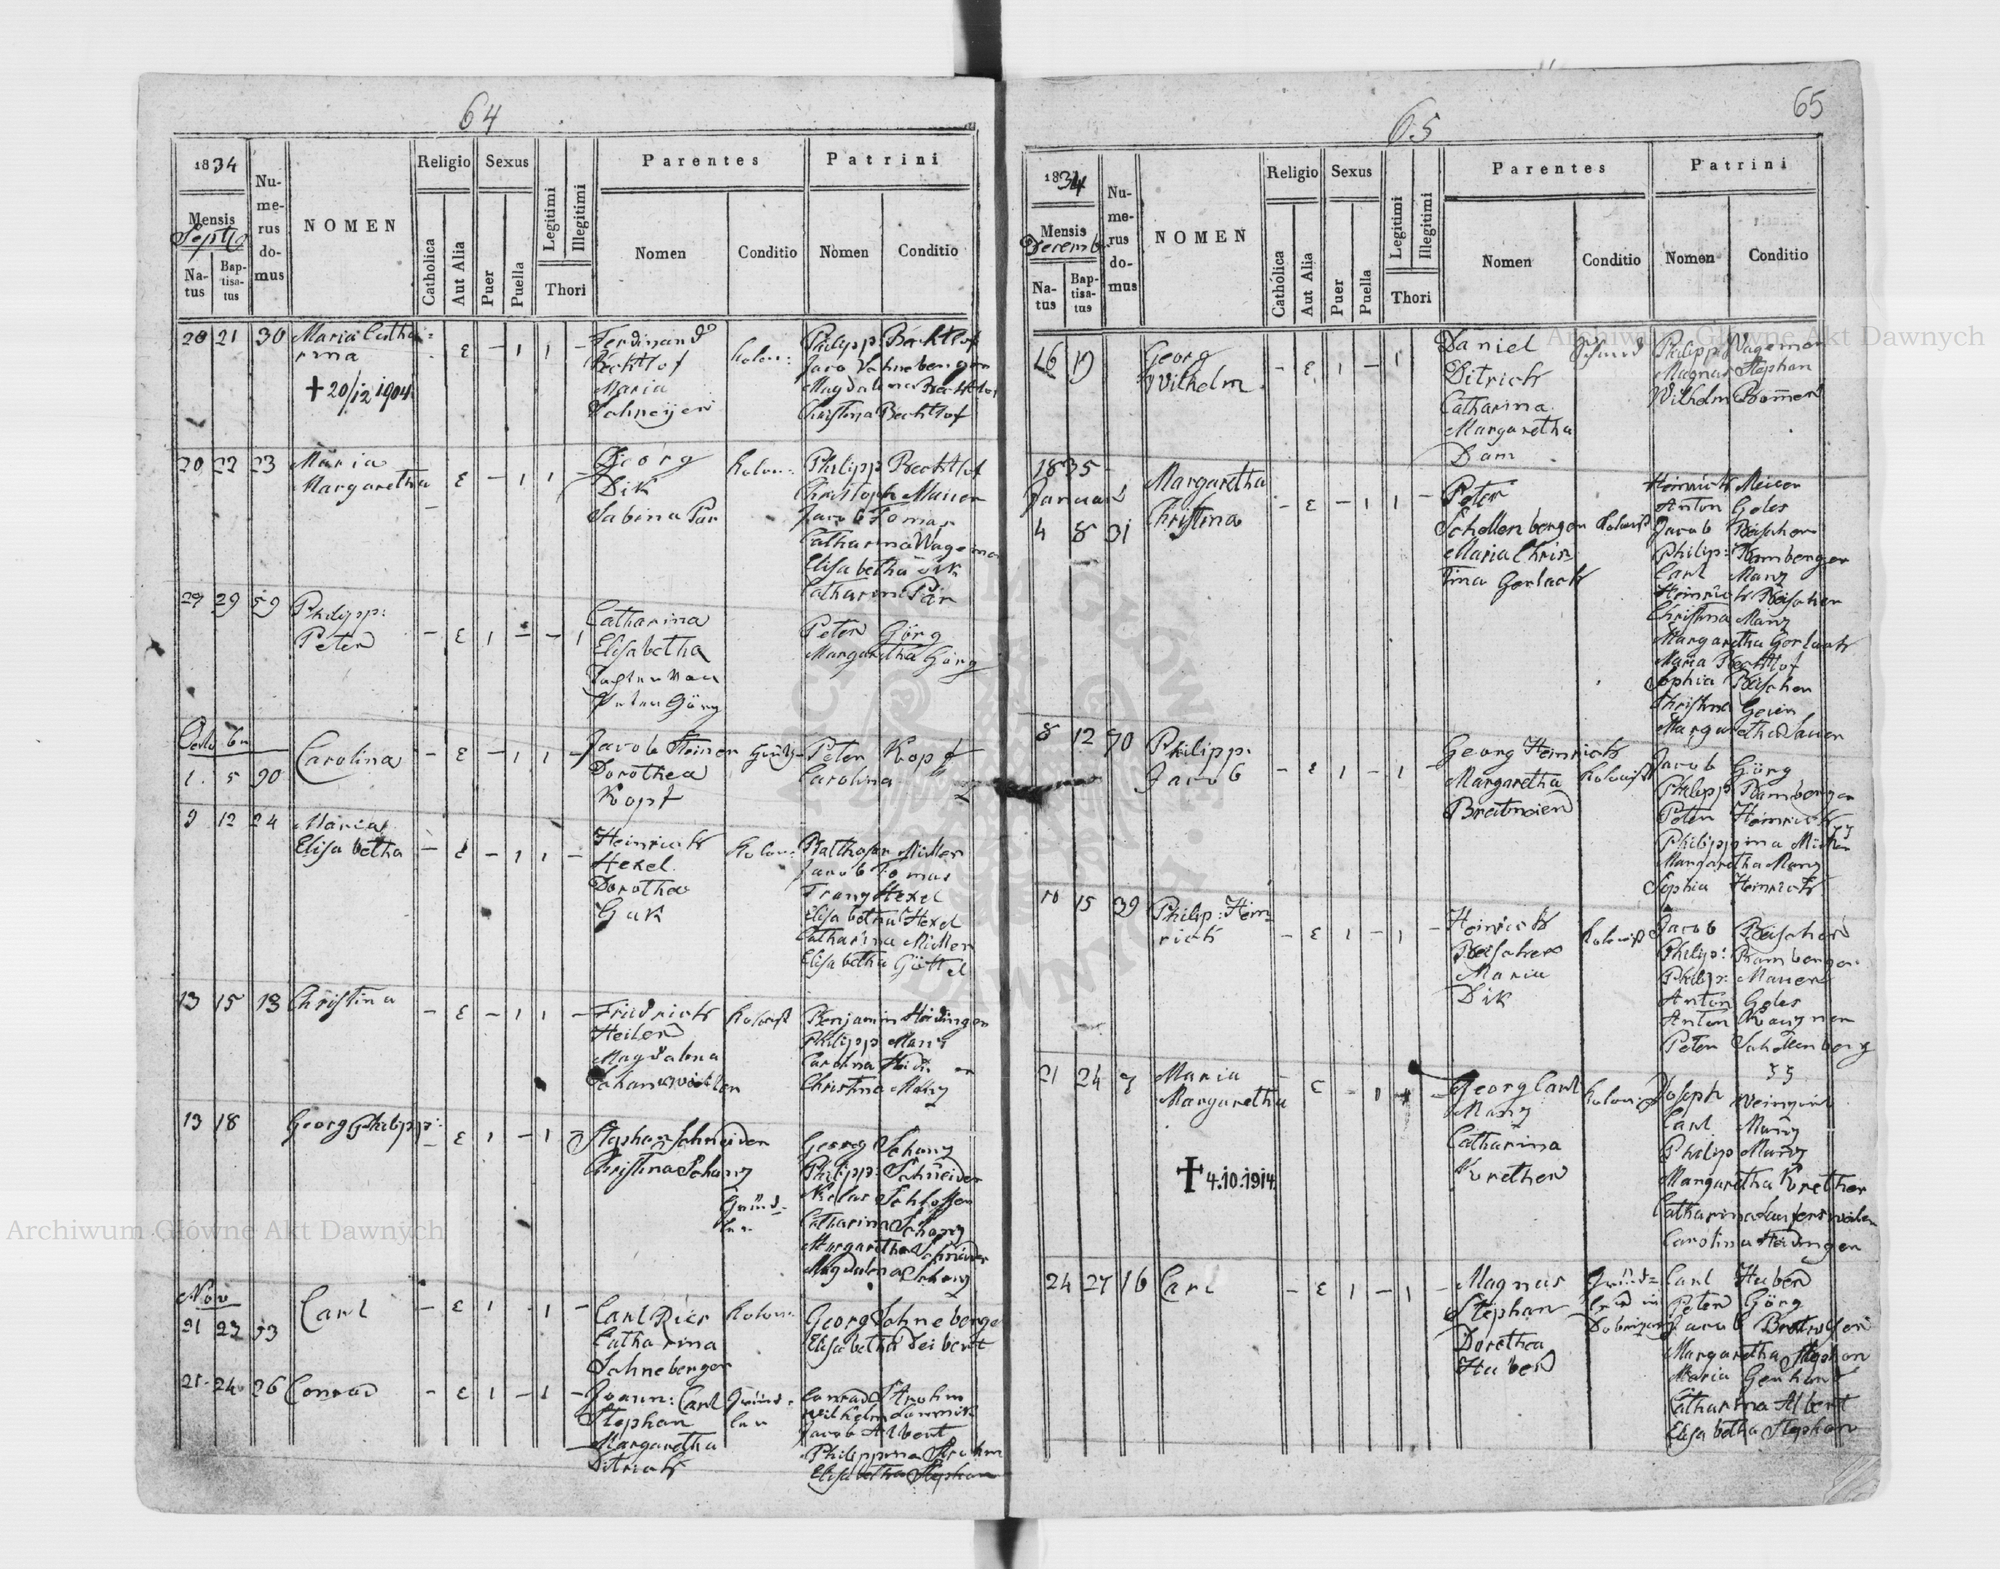 64
1834
Mensis
Septb
Natus
Baptisatus
Numerus domus
NOMEN
Religio
Catholica
Aut Alia
Sexus
Puer
Puella
Legitimi
Illegitimi
Thori
Parentes
Nomen
Conditio
Patrini
Nomen
Conditio
20 21 30 Maria Catha-
rina
✝ 20/12 1904
Ferdinand
Bechtlof
Maria
Kolon:
Philipp Bechtlof
Magdalena Bechtlof
Christina Bechtlof
20 22 23 Maria
Margaretha
Georg
Dik
Sabina Pär
Kolon:
Philipp Bechtlof
Christoph Mauer
Jacob Tomas
Catharina Wageman
Elisabetha Dik
Catharina Pär
29 29 59 Philipp:
Peter
Catharina
Elisabetha
Tochter von
Peter Görg
Peter Görg
Margaretha Görg
Octobr
1. 5 90 Carolina
Jacob Steiner
Dorothea
Kopf
Peter Kopf
Carolina "
9 12 24 Maria
Elisabetha
Heinrich
Hexel
Dorothea
Guk
Kolon:
Balthasar Müller
Jacob Tomas
Franz Hexel
Elisabetha Hexel
Catharina Müller
Elisabetha Göttel
13 15 13 Christina
Friedrich
Heiler
Magdalena
Kolonist
Benjamin Heidinger
Philipp Manz
Carolina
Christina Manz
13 18 Georg Philipp:
Stephan Schneider
Christina Schanz
Gründ-
ler
Georg Schanz
Philipp: Schneider
Niclas Schlosser
Catharina Schanz
Margaretha Schneider
Magdalena Schanz
Nov
21 23 53 Carl
Carl Rier
Catharina
Schneberger
Kolon:
Georg Schneberger
Elisabetha Seibert
21 24 26 Conrad
Joann: Carl
Stephan
Margaretha
Ditrich
Gründ-
ler
Conrad Strohm
Wilhelm
Jacob Albert
Philippina Strohm
Elisabetha Stephan
65
65
1834
Mensis
Decemb
Natus
Baptisatus
Numerus domus
NOMEN
Religio
Catholica
Aut Alia
Sexus
Puer
Puella
Legitimi
Illegitimi
Thori
Parentes
Nomen
Conditio
Patrini
Nomen
Conditio
16 19 Georg
Wilhelm
Daniel
Ditrich
Catharina
Margaretha
Dam
Philipp Wageman
Magnus Stephan
Wilhelm
1835
Januar
4 8 31 Margaretha
Christina
Peter
Schollenberger
Maria Chris
tina Gerlach
Kolonist
Heinrich Meier
Anton Goles
Jacob Reischer
Philip: Ramberger
Carl Manz
Heinrich Reischer
Christina Manz
Margaretha Gorlach
Maria Bechtlof
Sophia Reischer
Christina
Margaretha Sauer
8 12 70 Philipp:
Jacob
Georg Heinrich
Margaretha
Breitmeier
Kolonist
Jacob Görg
Philipp Ramberger
Peter Heinrich
Philippina
Margaretha Manz
Sophia Heinrich
10 15 39 Philip: Hein-
rich
Heinrich
Reischer
Maria
Dik
Kolonist
Jacob Reischer
Philip: Ramberger
Philip: Mauer
Anton Goles
Anton Wagner
Peter Schollenberg
21 24 7 Maria
Margaretha
✝ 4.10.1914
Georg Carl
Manz
Catharina
Krether
Kolonist
Joseph
Carl Manz
Philip Manz
Margaretha Krether
Catharina Laufersweiler
Carolina Heidinger
24 27 16 Carl
Magnus
Stephan
Dorothea
Huber
Gründ-
ler in
Carl Huber
Peter Görg
Jacob
Margaretha Stephan
Maria Gerhard
Catharina Albert
Elisabetha Stephan
Archiwum Główne Akt Dawnych
Archiwum Główne Akt Dawnych